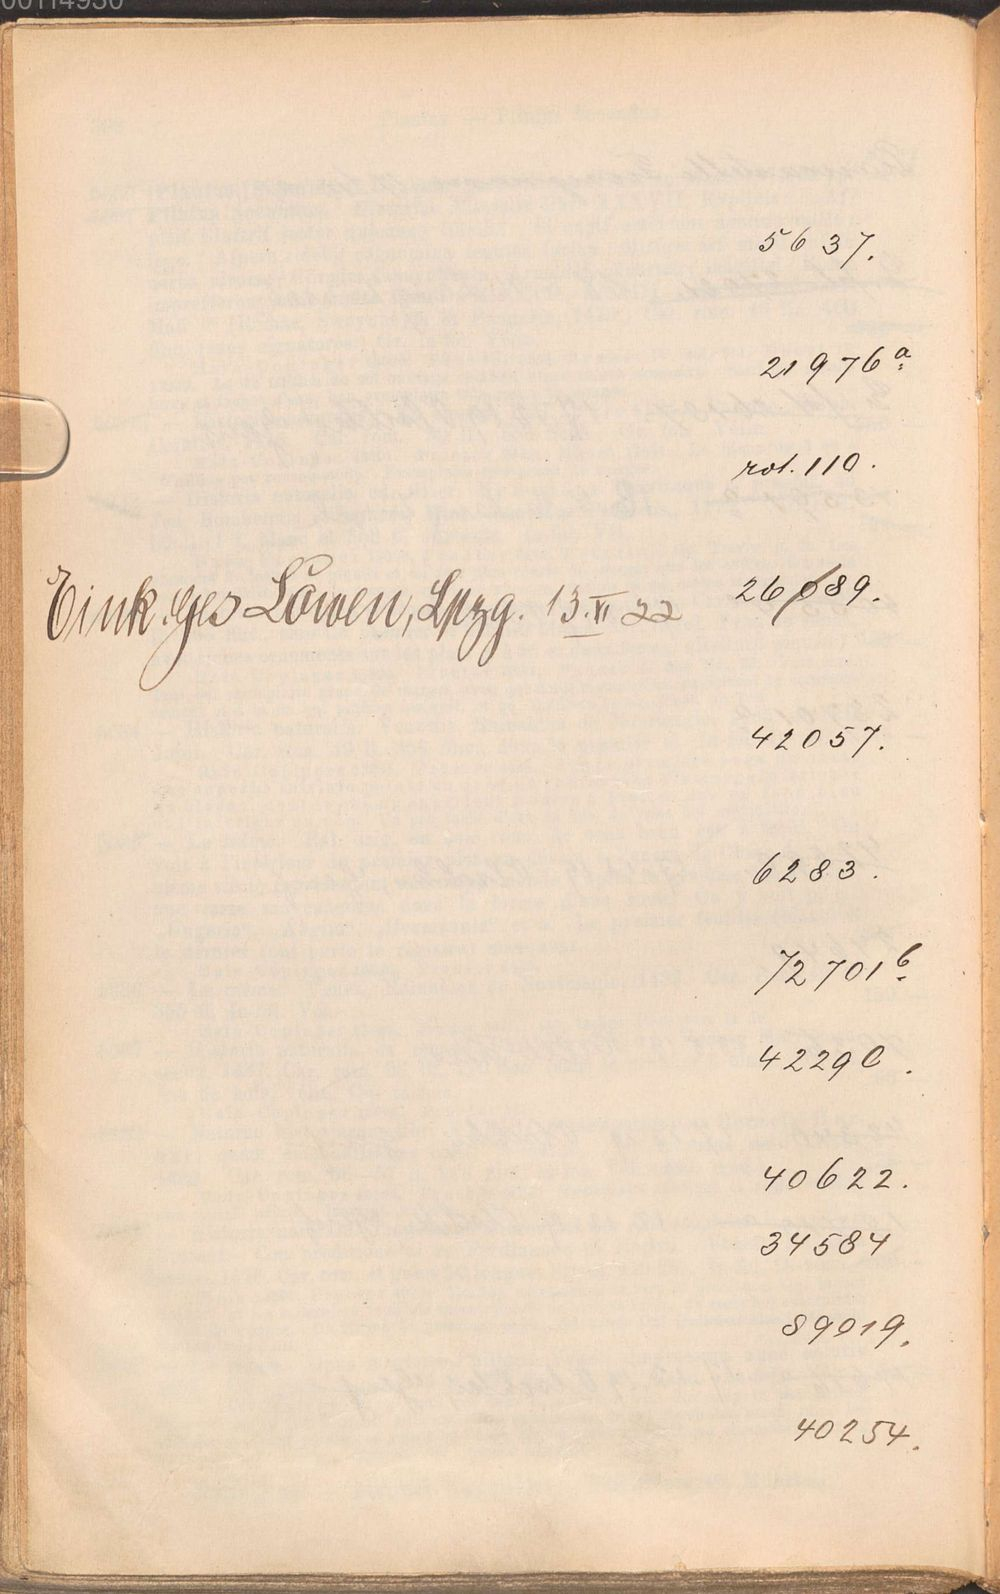 5637.
21976a.
rot. 110.
Eink. Ges Löwen, Lpzg. 13.VI 22 26089.
42057.
6283.
72701b.
42290.
40622.
34584
89019.
40254.